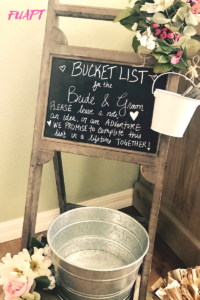 FUAPT
BUCKET LIST
for the
Bride & Groom
PLEASE leave a note
an idea, or an ADVENTURE
WE PROMISE to complete this
list in a lifetime TOGETHER!